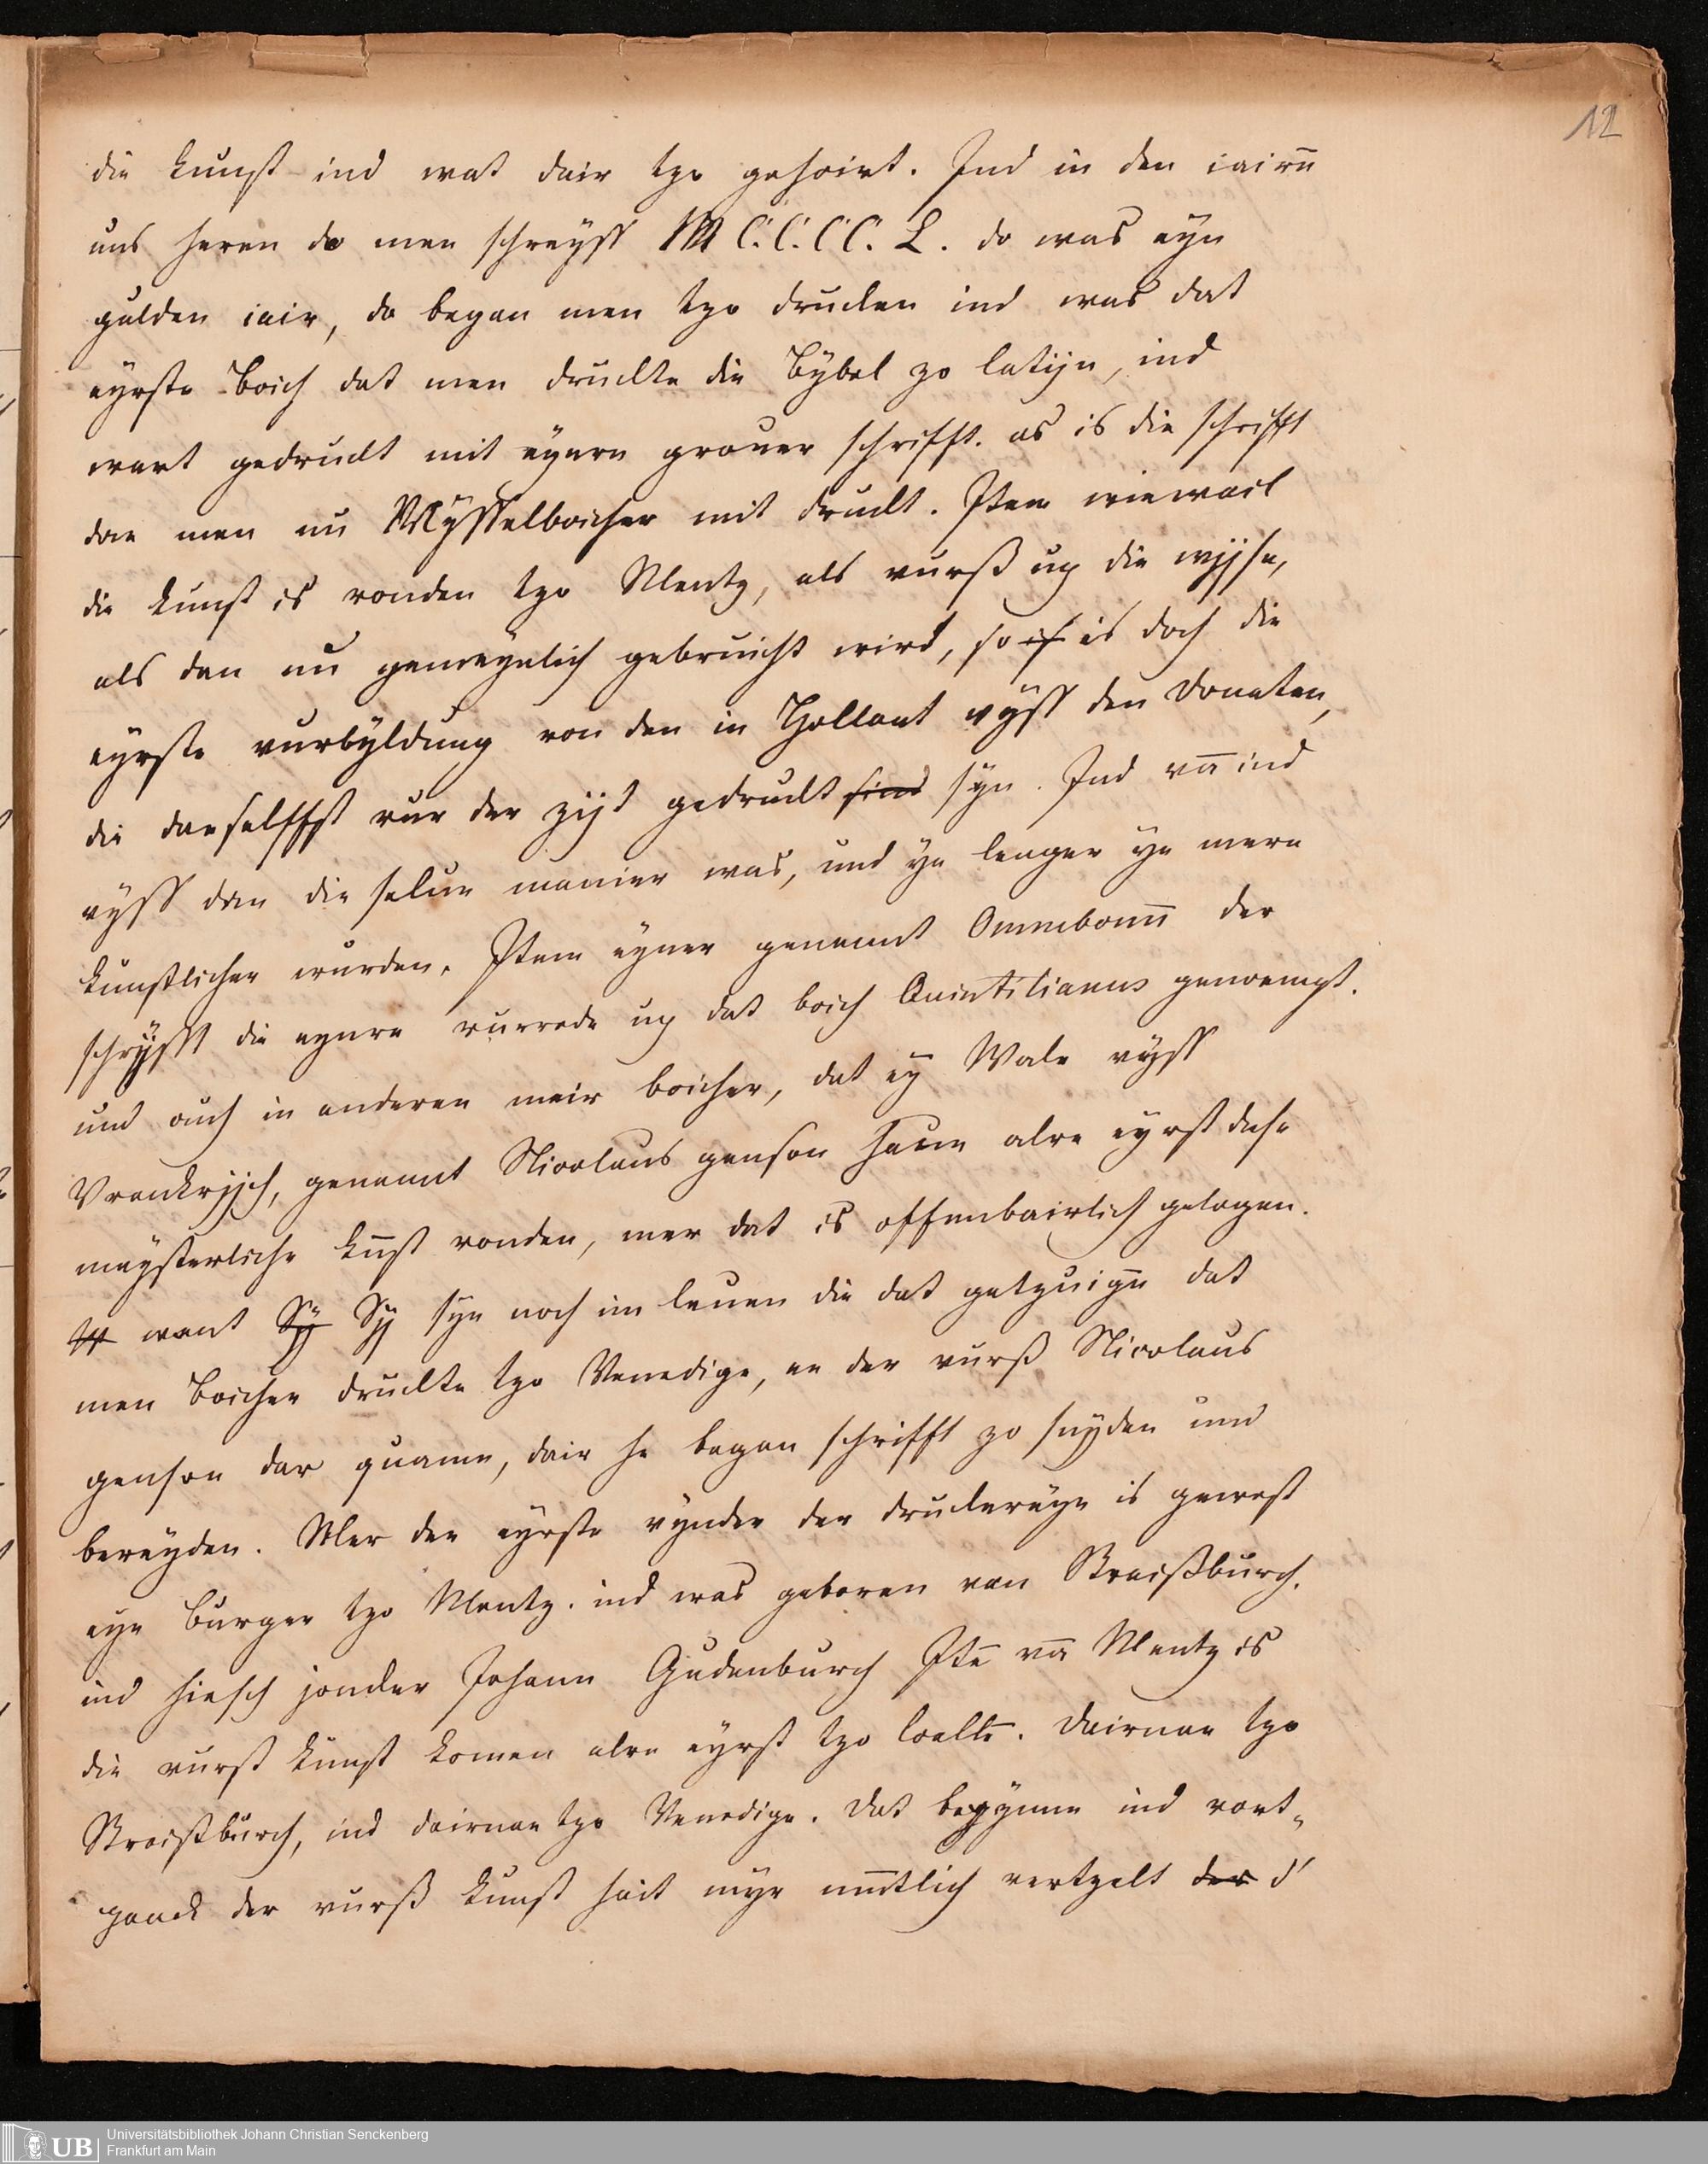 12
die kunst ind wat dair tzo gehoirt. Ind in den iairn̄
uns heren do men schreyff M C.C.C C. L. do was eyn
gulden iair, do began men tzo drucken ind was dat
eyrste Boich dat men druckte die Bybel zo latijn, ind
wart gedruckt mit eynre grouer schrifft. as is die schrifft
dae men nu Mysselboicher mit druckt. Item wiewail
die kunst is vonden tzo Mentz, als vurß up die wijse,
als dan nu gemeynlich gebruicht wird, so is doch die
eyrste vurbyldung von den in Hollant vyss den Donaten,
die daeselffst vur der zijt gedruckt sind syn. Ind va̅ ind
vyss den die selue manier was, und ye lenger ye mere
kunstlicher wurden. Item eyner genannt Omnebonu̅ der
schryfft die eynre vurrede up dat boich Quintilianus genoempt.
und ouch in anderen meir boicher, dat ey̅ Wale vyss
Vranckrijch, genannt Nicolaus genson haue alre eyrst dese
meysterliche ku̅st vonden, mer dat is offenbairlich gelogen.
want Sy Sy syn noch im leuen die dat getzuige̅ dat
men boicher druckte tzo Venedige, ee der vurß Nicolaus
genson dar quame, dair he began schrifft zo snyden und
bereyden. Mer der eyrste vynder der druckereye is gewest
eyn Burger tzo Mentz. ind was geboren van Straißburch.
ind hiesch joncker Johann Gudenburch Ite̅ va̅ Mentz is
die vurst kunst komen alre eyrst tzo Coelle̅. Dairnae tzo
Straißburch, ind dairnae tzo Venedige. Dat begynne ind vort-
ganck der vurß kunst hait myr mu̅tlich vertzelt der d'
UB Universitätsbibliothek Johann Christian Senckenberg
Frankfurt am Main